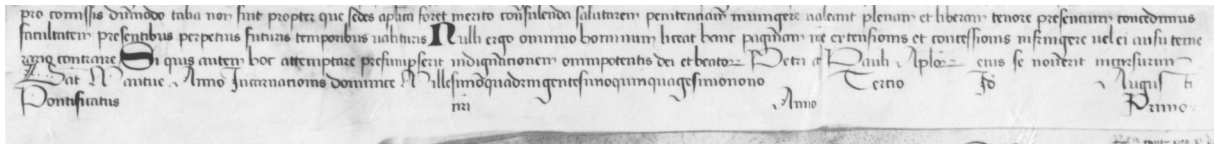 pro comissis dumodo talia non sint propter que sedes aplica foret merito consulenda salutarem penitenciam iniungere valeant plenam et liberam tenore presencium concedimus
facultatem presentibus perpetuis futuris temporibus valituris Nulli ergo omnino hominum liceat hanc paginam nre extensionis et concessionis infringere vel ei ausu teme
rario contraire Si quis autem hoc attemptare presumpserit indignacionem omnipotentis dei et beator Petri et Pauli Aplor eius se noverit incursurum
Dat Mantue Anno Incarnacionis dominice Millesimoquadringentesimoquinquagesimonono Tercio Id Augusti
Pontificatus nri Anno Primo